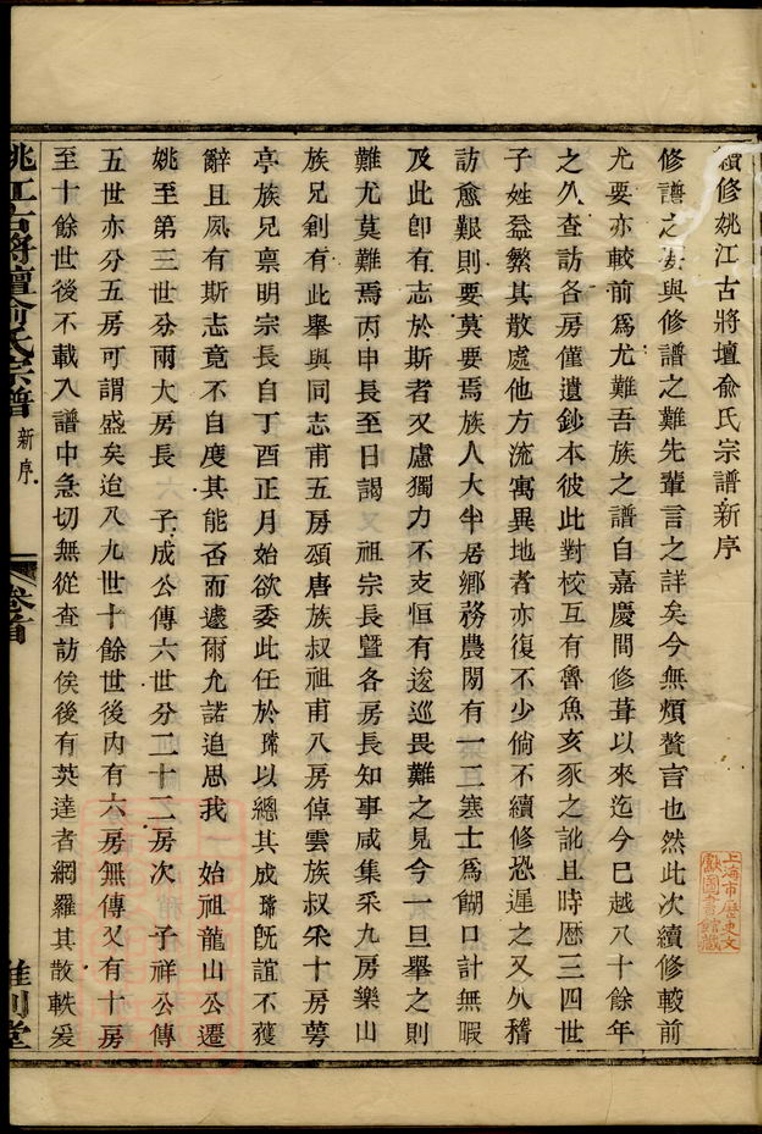 續修姚江古將壇俞氏宗譜新序
修譜之要與修譜之難先輩言之詳矣今無煩贅言也然此次續修較前
尤要亦較前爲尤難吾族之譜自嘉慶間修葺以來迄今已越八十餘年
之久查訪各房僅遺鈔本彼此對校互有魯魚亥豕之訛且時歷三四世
子姓益繁其散處他方流寓異地者亦復不少倘不續修恐遲之又久稽
訪愈艱則要莫要焉族人大半居鄉務農間有一二寒士爲餬口計無暇
及此卽有志於斯者又慮獨力不支恒有逡巡畏難之見今一旦舉之則
難尤莫難焉丙申長至日謁 祖宗長暨各房長知事咸集釆九房樂山
族兄創有此舉與同志甫五房頌唐族叔祖甫八房倬雲族叔釆十房蕚
亭族兄稟明宗長自丁酉正月始欲委此任於瑺以總其成瑺旣誼不獲
辭且夙有斯志竟不自度其能否而遽爾允諾追思我 始祖龍山公遷
姚至第三世分兩大房長 子成公傳六世分二十二房次 子祥公傳
五世亦分五房可謂盛矣迨八九世十餘世後內有六房無傳又有十房
至十餘世後不載入譜中急切無從查訪俟後有英達者網羅其散軼爰
姚江古將壇俞氏宗譜 新序 卷首 惟則堂
上海市歷史文
獻圖書館藏